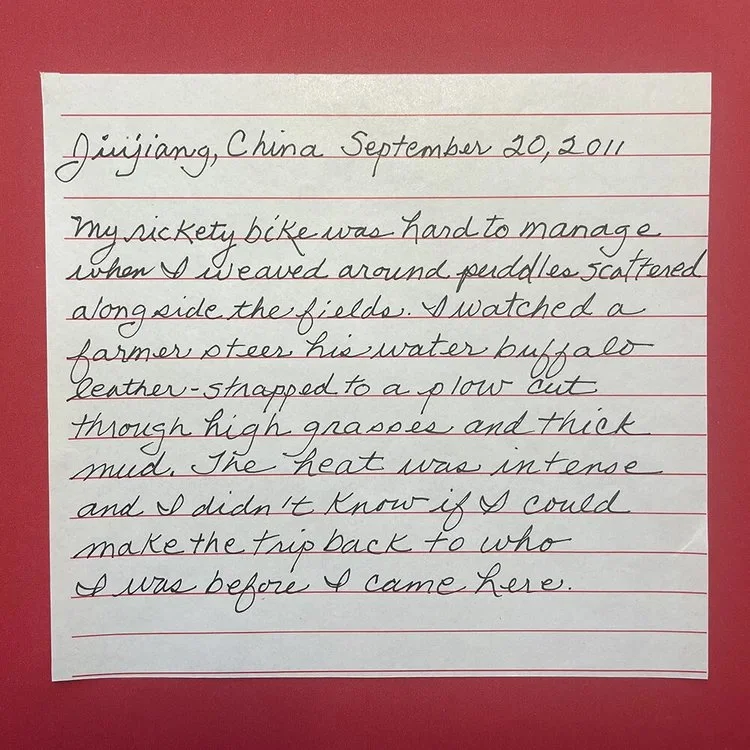 Jiujiang, China September 20, 2011
My rickety bike was hard to manage
when I weaved around puddles scattered
alongside the fields. I watched a
farmer steer his water buffalo
leather-strapped to a plow cut
through high grasses and thick
mud. The heat was intense
and I didn't know if I could
make the trip back to who
I was before I came here.